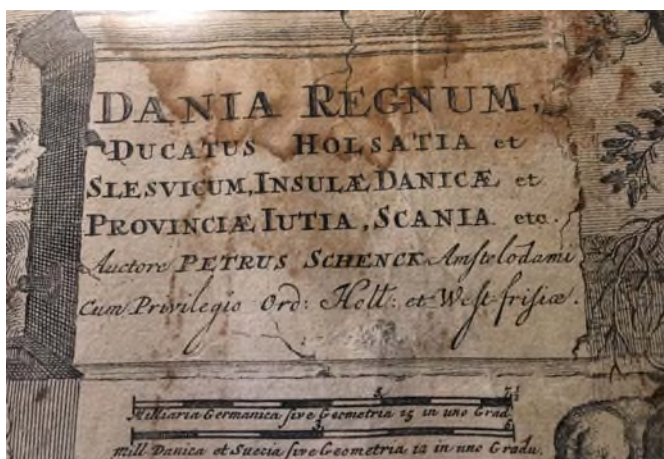 DANIA REGNUM,
DUCATUS HOLSATIA et
SLESVICUM, INSULÆ DANICÆ et
PROVINCIÆ IUTIA, SCANIA etc.
Auctore PETRUS SCHENCK Amstelodami
Cum Privilegio Ord: Holl: et West frisiæ.
5 7½
Milliaria Germanica sive Geometria 15 in uno Grad
3 6
mill Danica et Suecia sive Geometria 12 in uno Gradu.